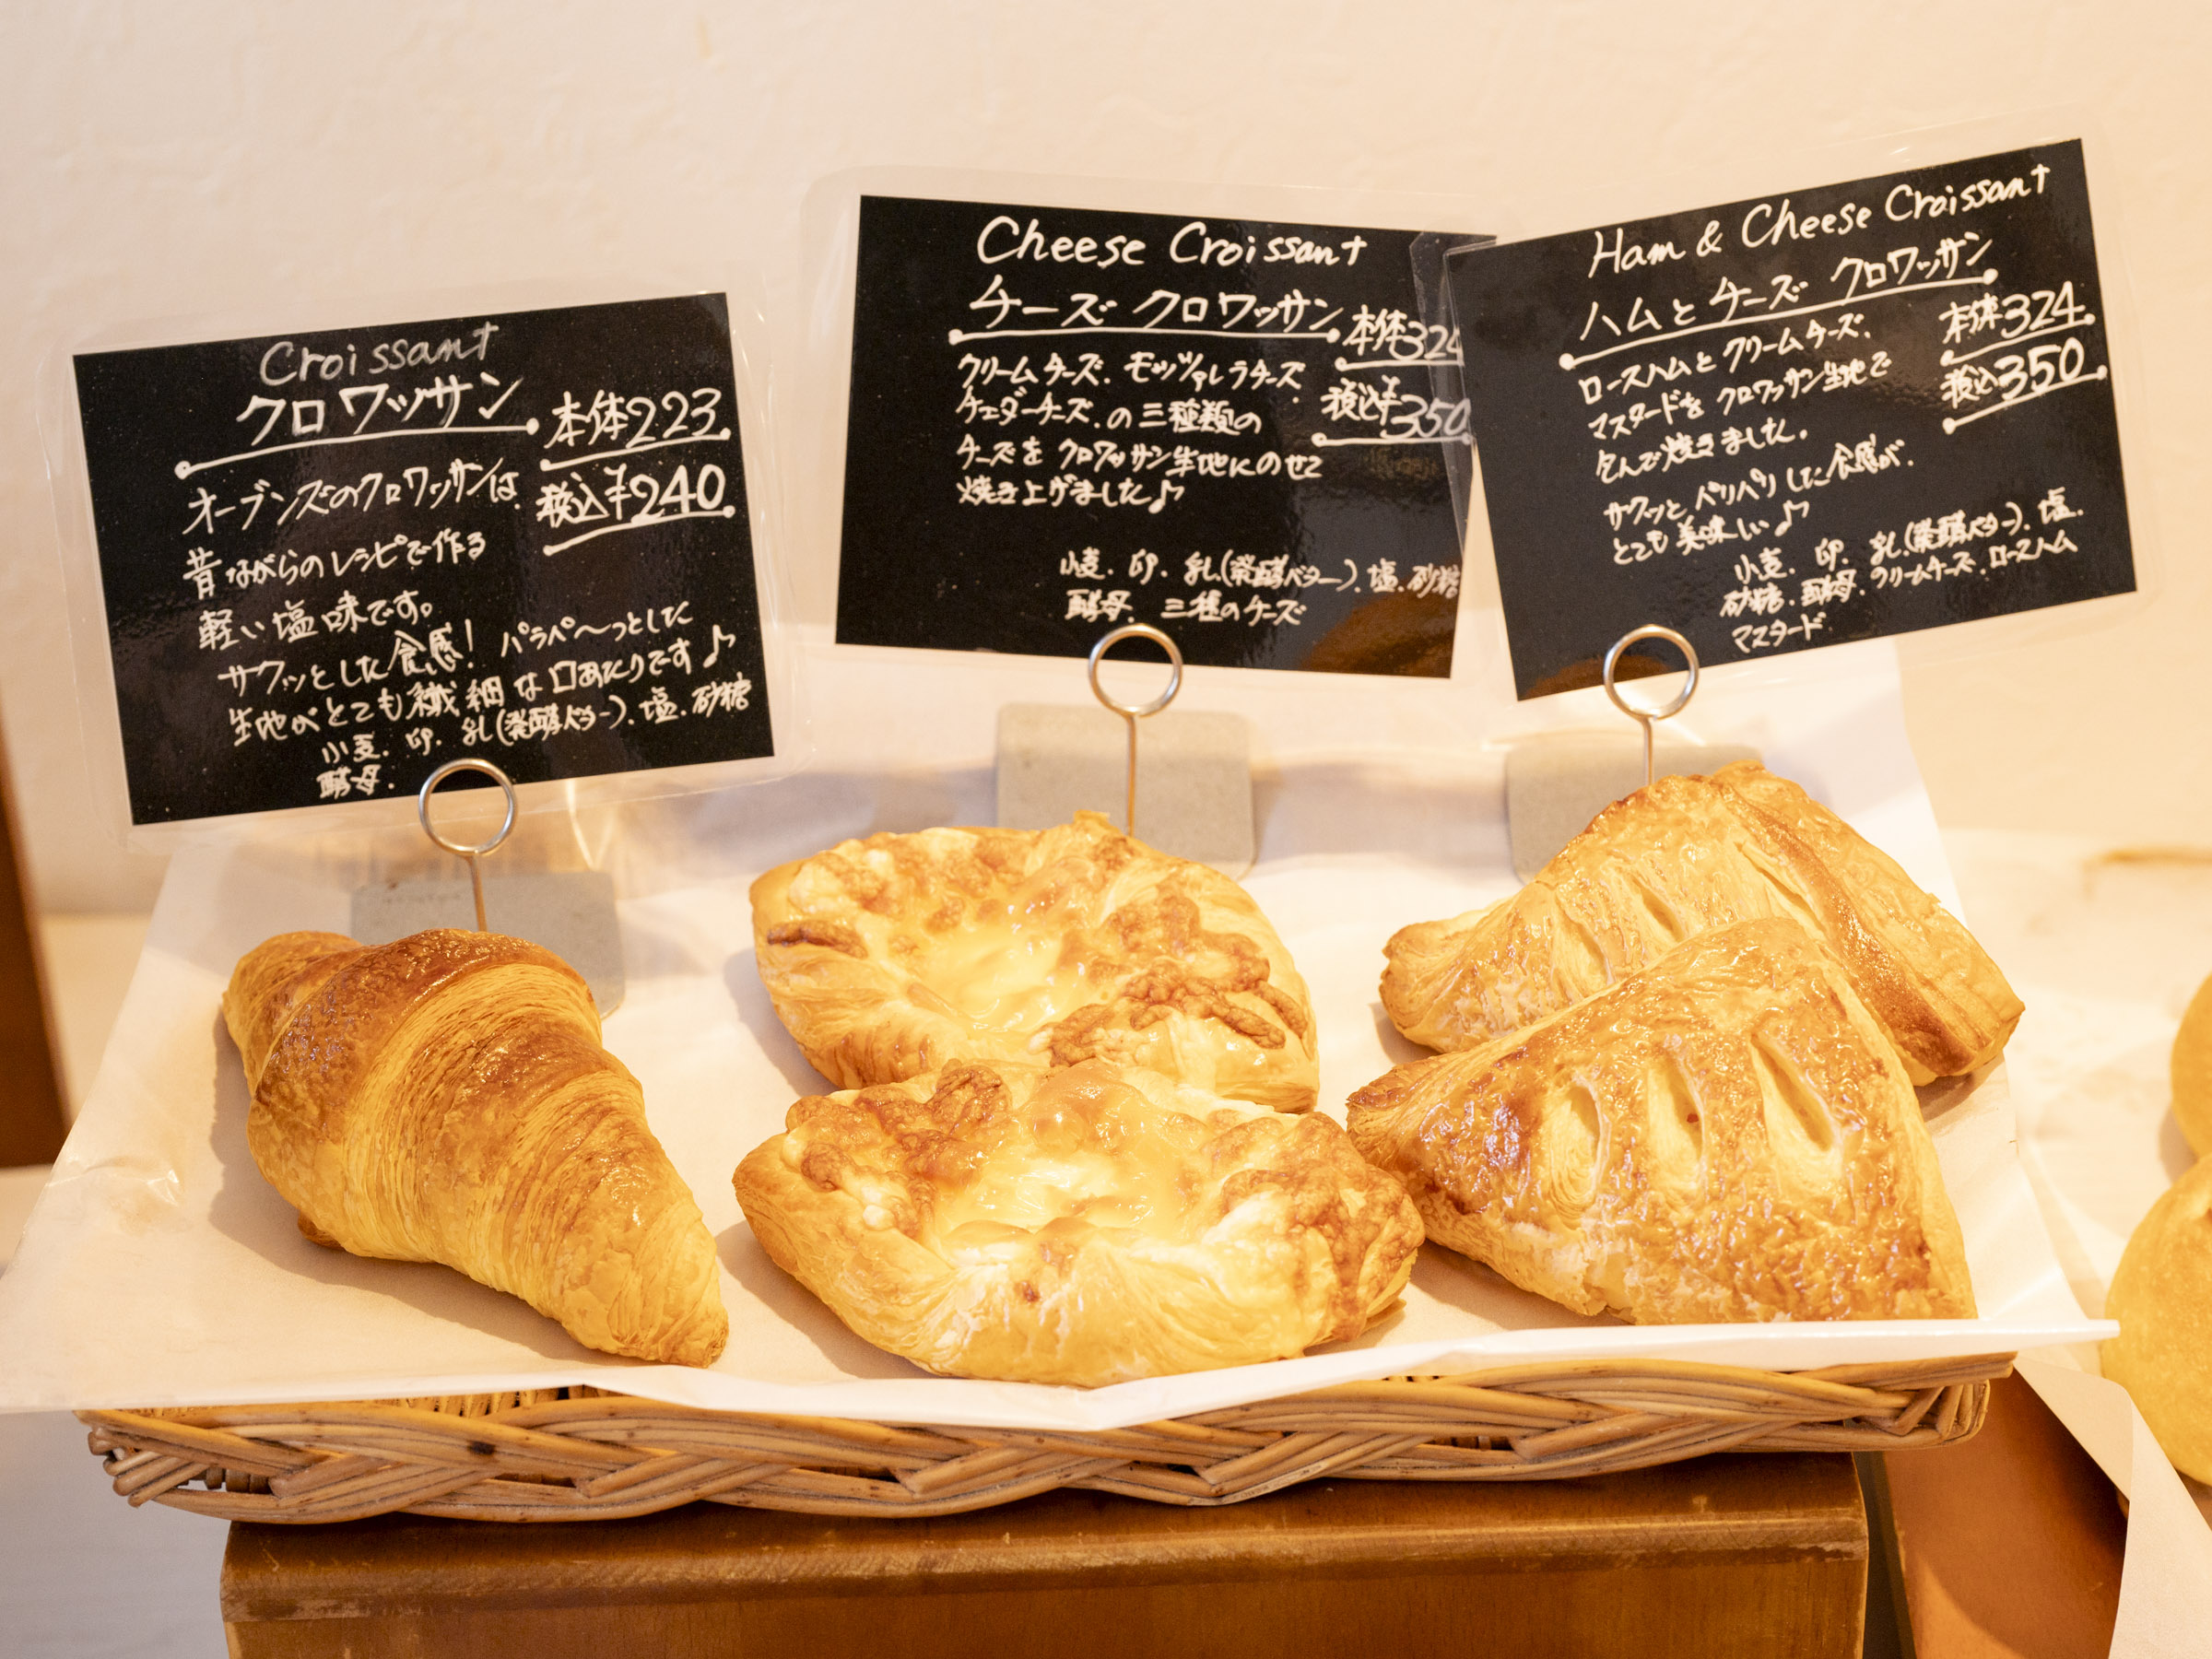 Croissant
クロワッサン
本体223
税込¥240
オーブンズのクロワッサンは、
昔ながらのレシピで作る
軽い塩味です。
サクッとした食感! パラパ〜っとした
生地がとても繊細な口あたりです♪
小麦、卵、乳(発酵バター)、塩、砂糖
酵母、
Cheese Croissant
チーズ クロワッサン
本体324
税込¥350
クリームチーズ、モッツァレラチーズ
チェダーチーズ、の三種類の
チーズをクロワッサン生地にのせて
焼き上げました♪
小麦、卵、乳(発酵バター)、塩、砂糖
酵母、三種のチーズ
Ham & Cheese Croissant
ハムとチーズ クロワッサン
本体324
税込350
ロースハムとクリームチーズ、
マスタードを クロワッサン生地で
包んで焼きました。
サクッと パリパリした食感が、
とても美味しい♪
小麦、卵、乳(発酵バター)、塩、
砂糖、酵母、クリームチーズ、ロースハム
マスタード